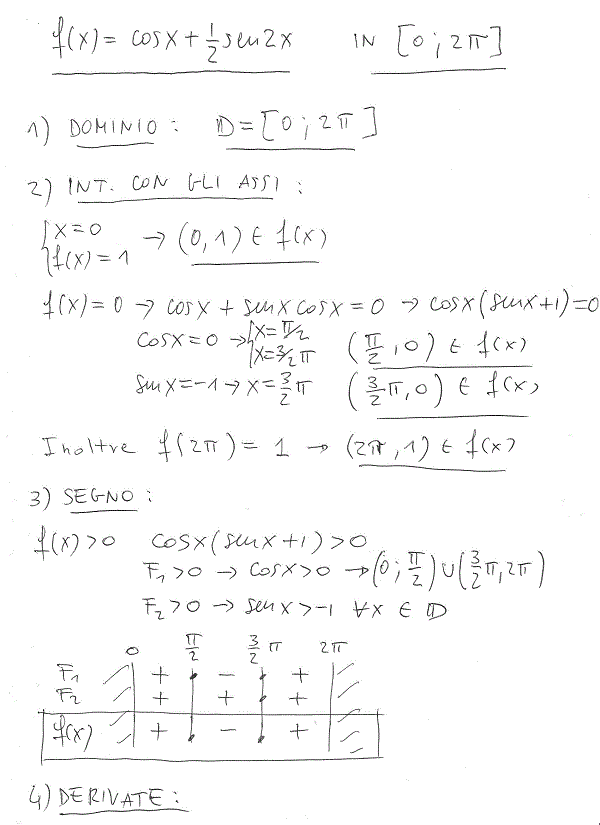 f(x) = cosx + 1/2 sen2x IN [0; 2π]
1) DOMINIO: D = [0; 2π]
2) INT. CON GLI ASSI:
{x=0
{f(x)=1 → (0,1) ∈ f(x)
f(x)=0 → cosx + senx cosx = 0 → cosx(senx+1)=0
cosx=0 → {x=π/2 (π/2, 0) ∈ f(x)
{x=3/2π
senx=-1 → x=3/2π (3/2π, 0) ∈ f(x)
Inoltre f(2π) = 1 → (2π, 1) ∈ f(x)
3) SEGNO:
f(x)>0 cosx(senx+1)>0
F1>0 → cosx>0 → (0; π/2) ∪ (3/2π, 2π)
F2>0 → senx>-1 ∀x ∈ D
0 π/2 3/2π 2π
F1 + - +
F2 + + +
f(x) + - +
4) DERIVATE: